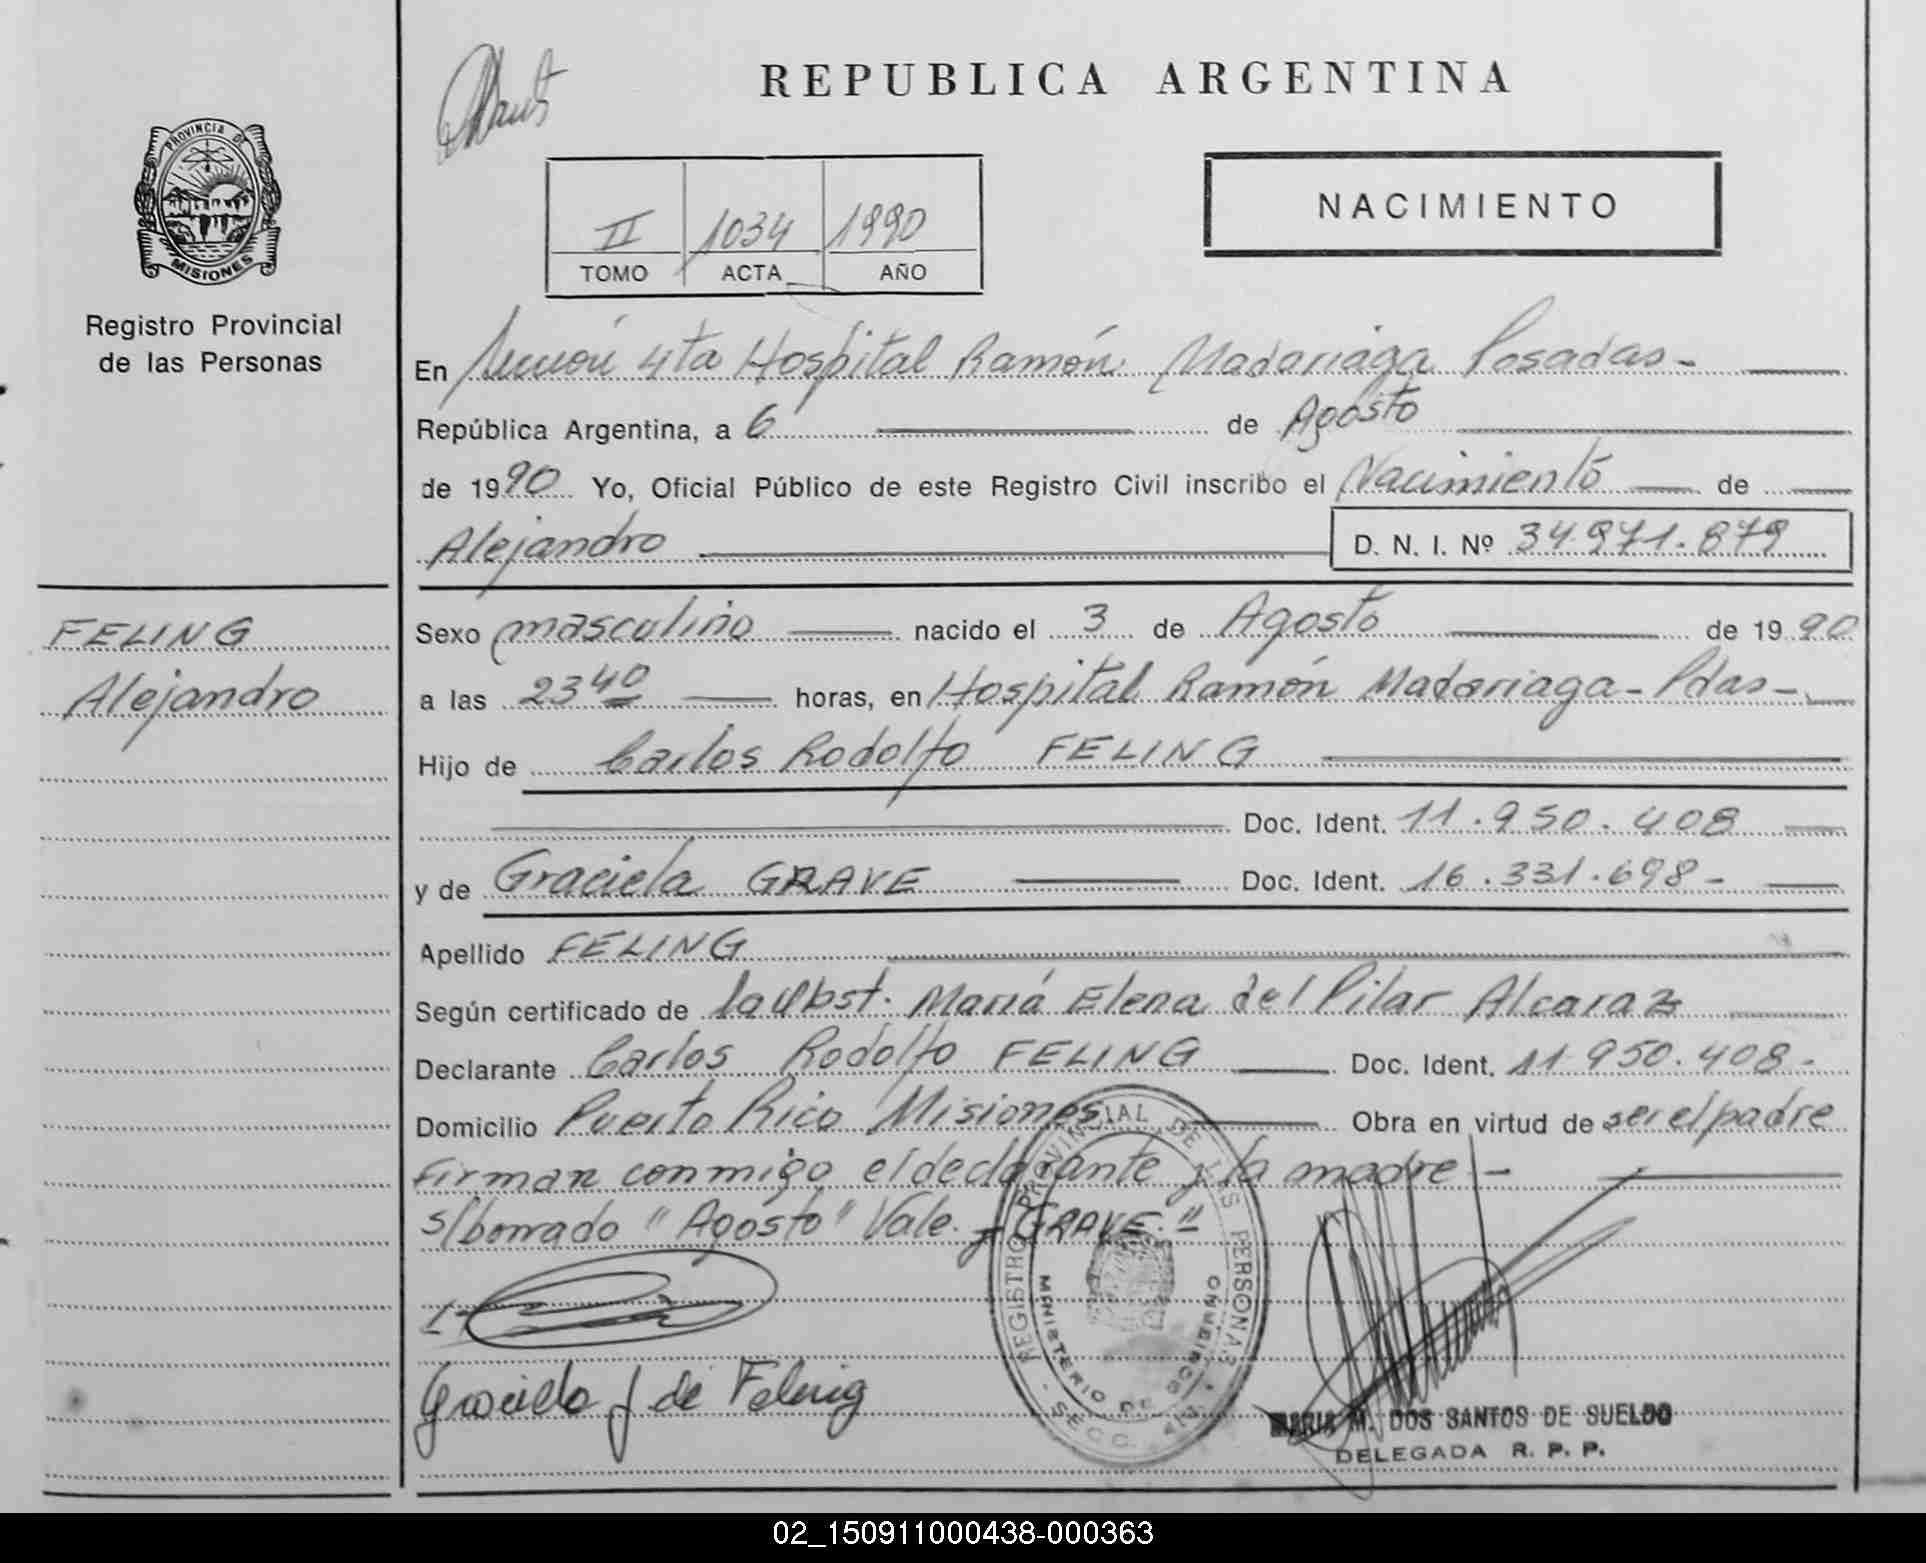 REPUBLICA ARGENTINA
PROVINCIA DE
MISIONES
Registro Provincial
de las Personas
NACIMIENTO
II 1034 1990
TOMO ACTA AÑO
En Sección 4ta Hospital Ramón Madariaga Posadas-
República Argentina, a 6 de Agosto
de 1990 Yo, Oficial Público de este Registro Civil inscribo el Nacimiento de
Alejandro D. N. I. Nº 34.971.879
FELING
Alejandro
Sexo masculino nacido el 3 de Agosto de 1990
a las 23 40 horas, en Hospital Ramón Madariaga-Pdas-
Hijo de Carlos Rodolfo FELING
Doc. Ident. 11.950.408
y de Graciela GRAVE Doc. Ident. 16.331.698-
Apellido FELING
Según certificado de la Obst. María Elena del Pilar Alcaraz
Declarante Carlos Rodolfo FELING Doc. Ident. 11.950.408-
Domicilio Puerto Rico Misiones Obra en virtud de ser el padre
firman conmigo el declarante y la madre-
s/borrado "Agosto" Vale. y "GRAVE."
REGISTRO PROVINCIAL DE LAS PERSONAS
MINISTERIO DE GOBIERNO
SECC. 4ta
Graciela G de Feling
MARIA M. DOS SANTOS DE SUELDO
DELEGADA R. P. P.
02_150911000438-000363